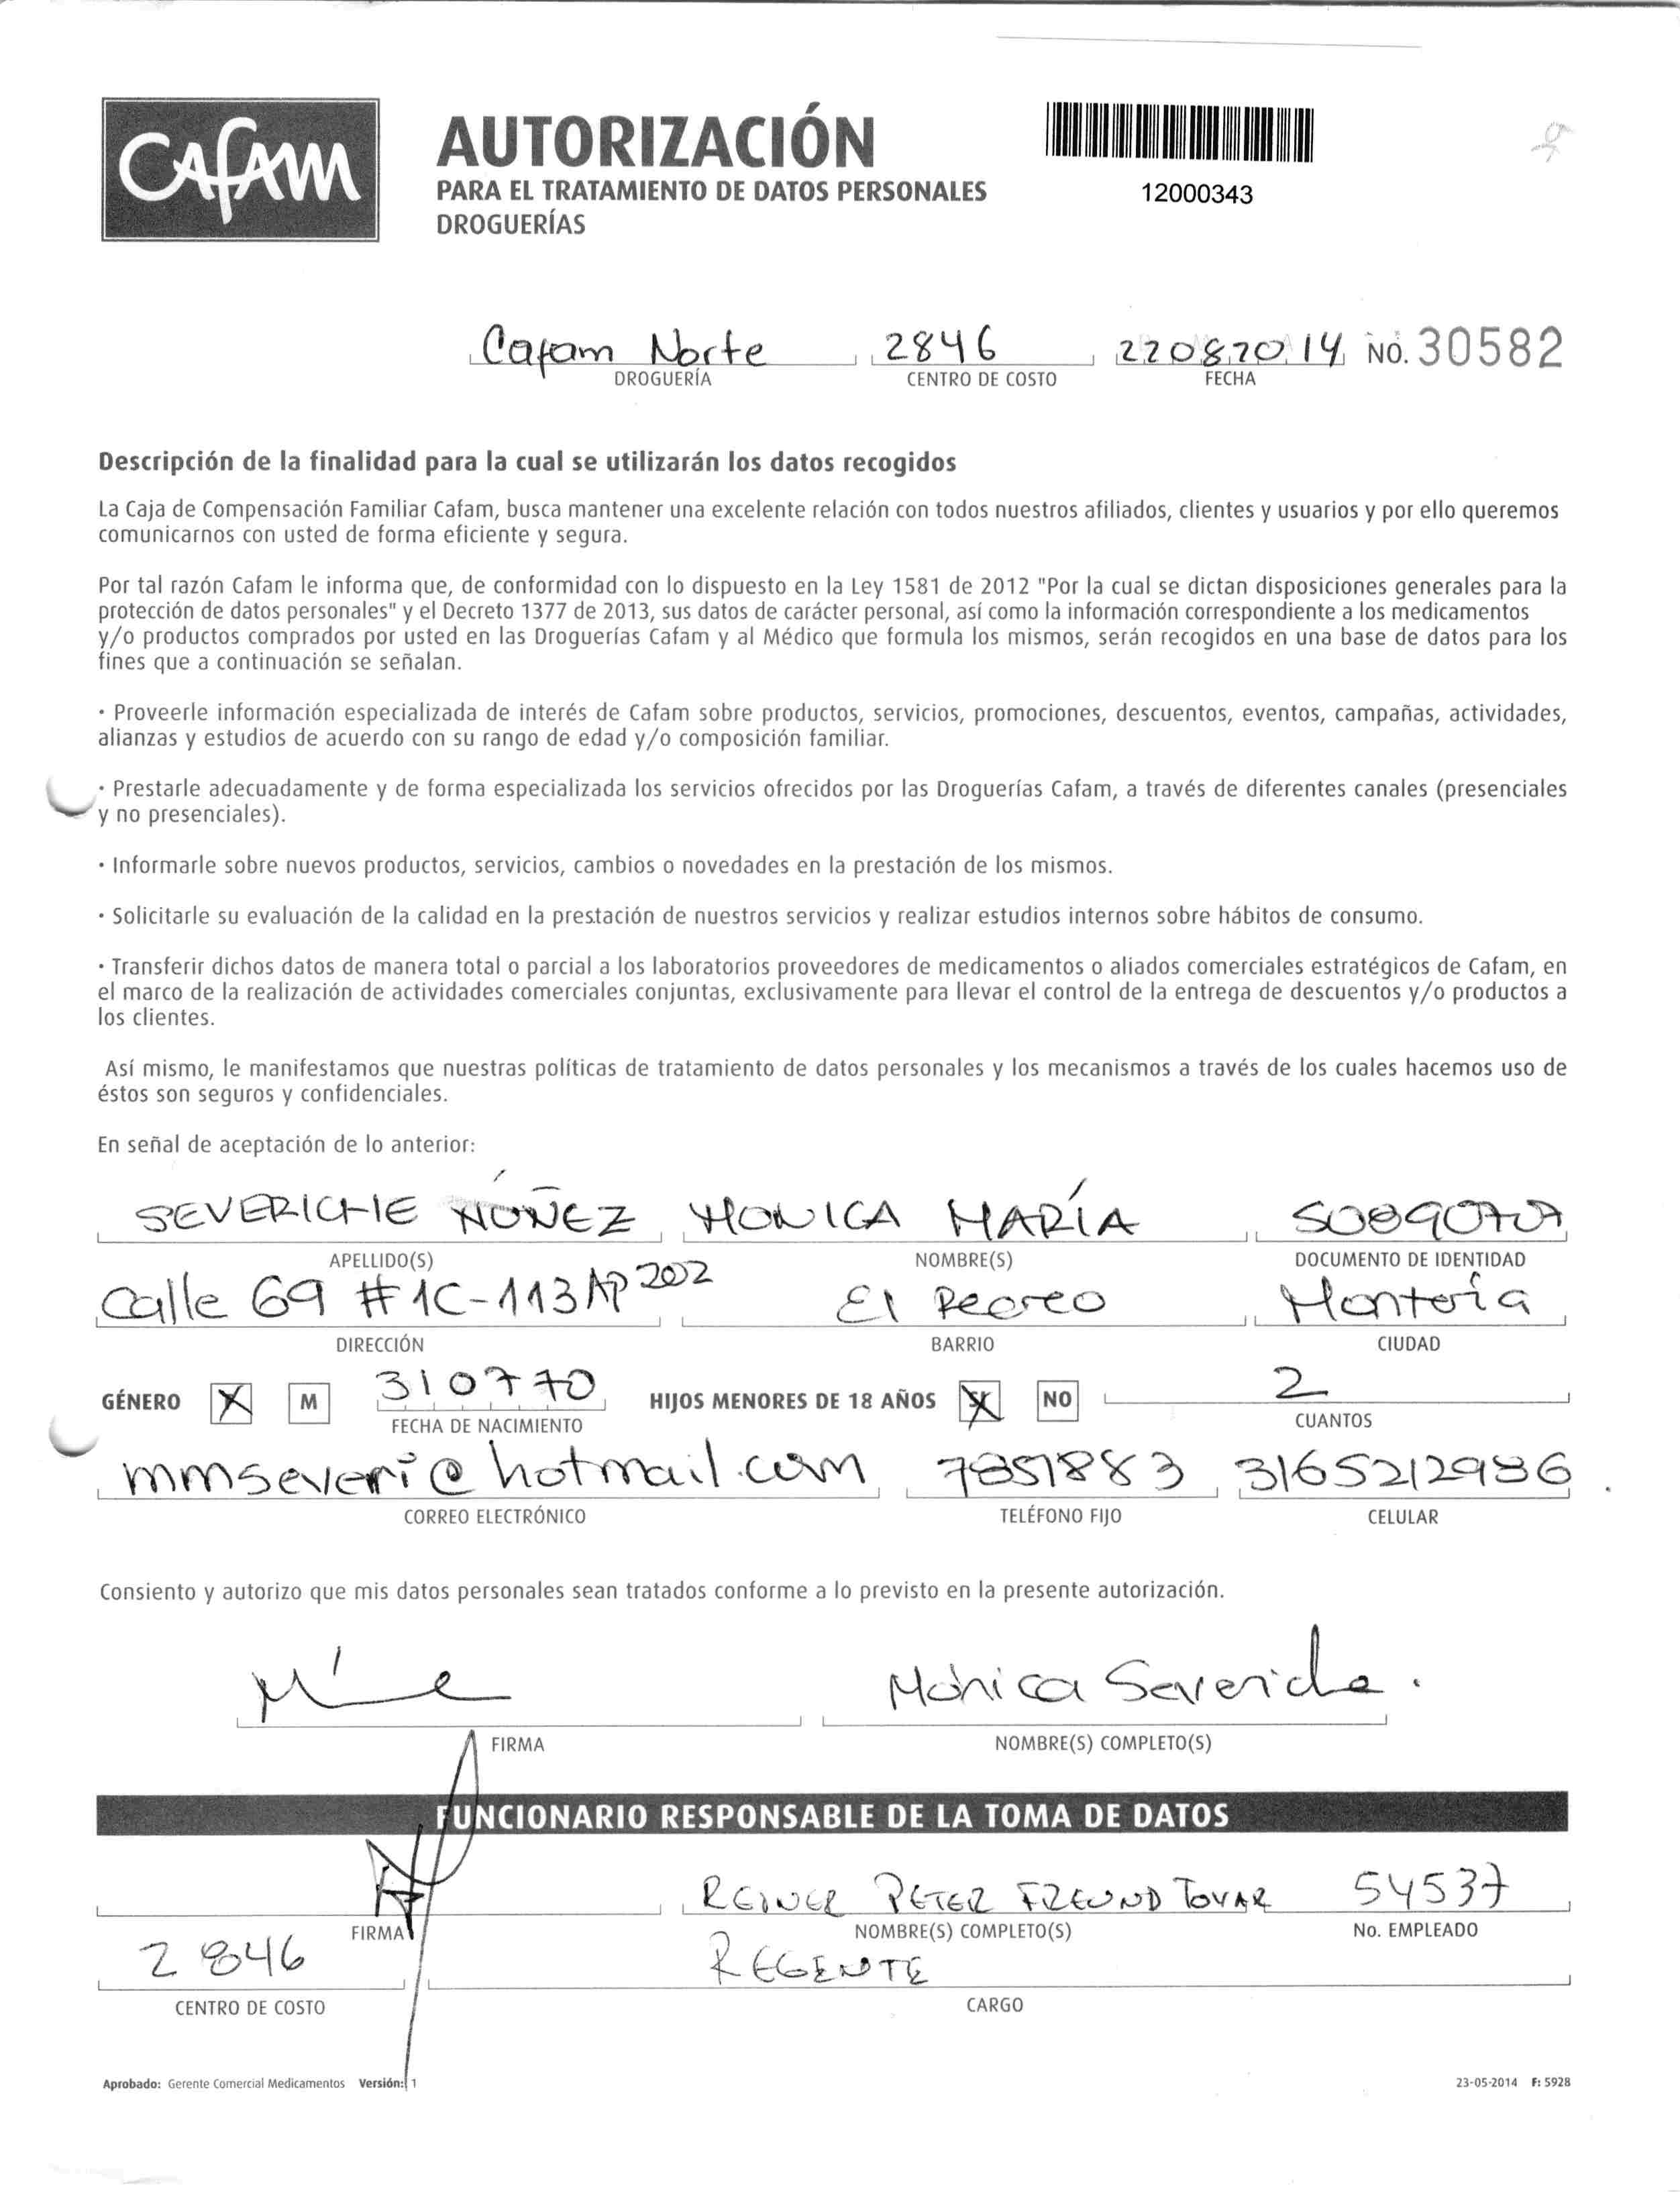 Cafam
AUTORIZACIÓN
PARA EL TRATAMIENTO DE DATOS PERSONALES
DROGUERÍAS
12000343
Cafam Norte 2846 22082014 NO. 30582
DROGUERÍA CENTRO DE COSTO FECHA
Descripción de la finalidad para la cual se utilizarán los datos recogidos
La Caja de Compensación Familiar Cafam, busca mantener una excelente relación con todos nuestros afiliados, clientes y usuarios y por ello queremos
comunicarnos con usted de forma eficiente y segura.
Por tal razón Cafam le informa que, de conformidad con lo dispuesto en la Ley 1581 de 2012 "Por la cual se dictan disposiciones generales para la
protección de datos personales" y el Decreto 1377 de 2013, sus datos de carácter personal, así como la información correspondiente a los medicamentos
y/o productos comprados por usted en las Droguerías Cafam y al Médico que formula los mismos, serán recogidos en una base de datos para los
fines que a continuación se señalan.
· Proveerle información especializada de interés de Cafam sobre productos, servicios, promociones, descuentos, eventos, campañas, actividades,
alianzas y estudios de acuerdo con su rango de edad y/o composición familiar.
· Prestarle adecuadamente y de forma especializada los servicios ofrecidos por las Droguerías Cafam, a través de diferentes canales (presenciales
y no presenciales).
· Informarle sobre nuevos productos, servicios, cambios o novedades en la prestación de los mismos.
· Solicitarle su evaluación de la calidad en la prestación de nuestros servicios y realizar estudios internos sobre hábitos de consumo.
· Transferir dichos datos de manera total o parcial a los laboratorios proveedores de medicamentos o aliados comerciales estratégicos de Cafam, en
el marco de la realización de actividades comerciales conjuntas, exclusivamente para llevar el control de la entrega de descuentos y/o productos a
los clientes.
Así mismo, le manifestamos que nuestras políticas de tratamiento de datos personales y los mecanismos a través de los cuales hacemos uso de
éstos son seguros y confidenciales.
En señal de aceptación de lo anterior:
SEVERICHE NÚÑEZ MONICA MARÍA
APELLIDO(S) NOMBRE(S) DOCUMENTO DE IDENTIDAD
Calle 69 #1C-113 AP 202 El Recreo Montería
DIRECCIÓN BARRIO CIUDAD
GÉNERO M 310770 HIJOS MENORES DE 18 AÑOS SI NO 2
FECHA DE NACIMIENTO CUANTOS
mmseveri@hotmail.com 7851883 3165212986
CORREO ELECTRÓNICO TELÉFONO FIJO CELULAR
Consiento y autorizo que mis datos personales sean tratados conforme a lo previsto en la presente autorización.
Mónica Severiche.
FIRMA NOMBRE(S) COMPLETO(S)
FUNCIONARIO RESPONSABLE DE LA TOMA DE DATOS
REINER PETER FREUND TOVAR 54537
FIRMA NOMBRE(S) COMPLETO(S) No. EMPLEADO
2846 REGENTE
CENTRO DE COSTO CARGO
Aprobado: Gerente Comercial Medicamentos Versión: 1 23-05-2014 F: 5928